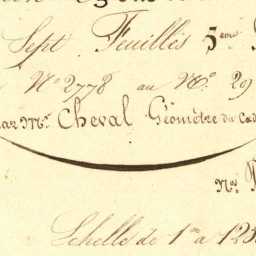 Sept Feuilles 5eme
No 2778 au No. 29
par Mr. Cheval Géomètre du Cad
Echelle de 1 m à 125